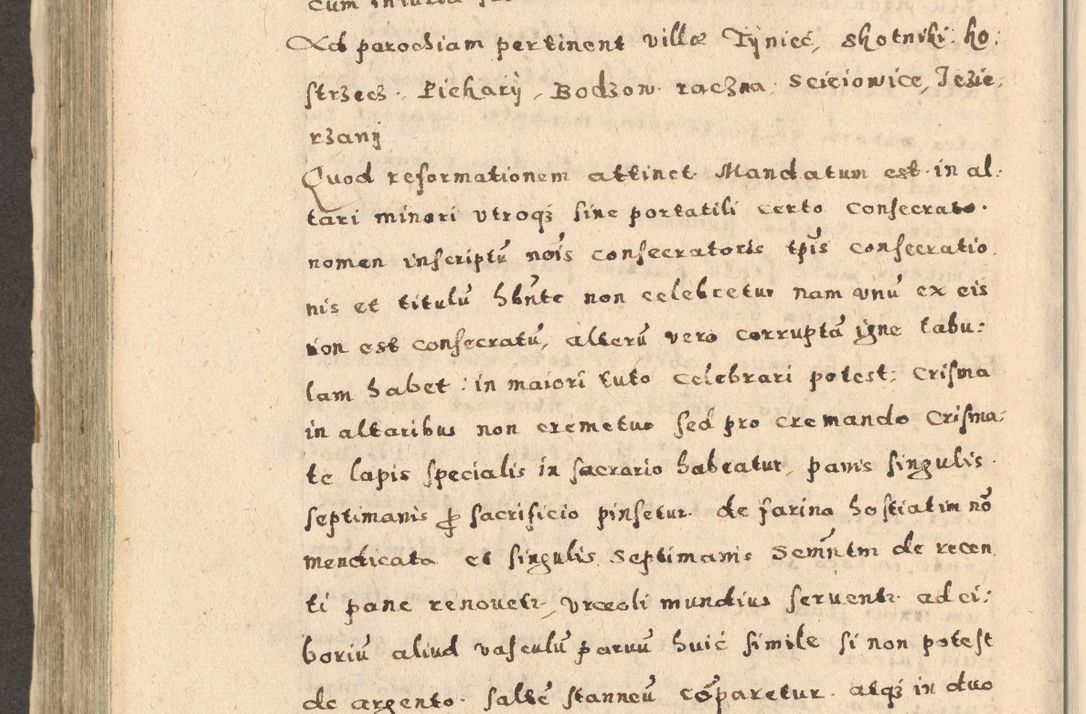 Ad parochiam pertinent villæ Tÿniec, skotniki, ko:
strzecz, Piecharÿ, Bodzow, raczna, Sciciowice, Jezie,
rzanÿ
Quod reformationem attinet Mandatum est in al:
tari minori vtroqȝ sine portatili certo consecrato.
nomen inscriptū nōis consecratoris tp̄is consecratio
nis et titulū hn̄te non celebretur nam vnū ex eis
non est consecratū, alterū vero corruptā igne tabu:
lam habet: in maiori tuto celebrari potest; Crisma
in altaribus non cremetur sed pro cremando Crisma:
te lapis specialis in sacrario habeatur, panis singulis
septimanis ꝓ sacrificio pinsetur de farina hostiatim nō
mendicata et singulis septimanis Semn̄tm de recen
ti pane renouetr, vrceoli mundius seruentr ad ci:
boriū aliud vasculū paruū huic simile si non potest
de argento saltē stanneū cōparetur atqȝ in duo